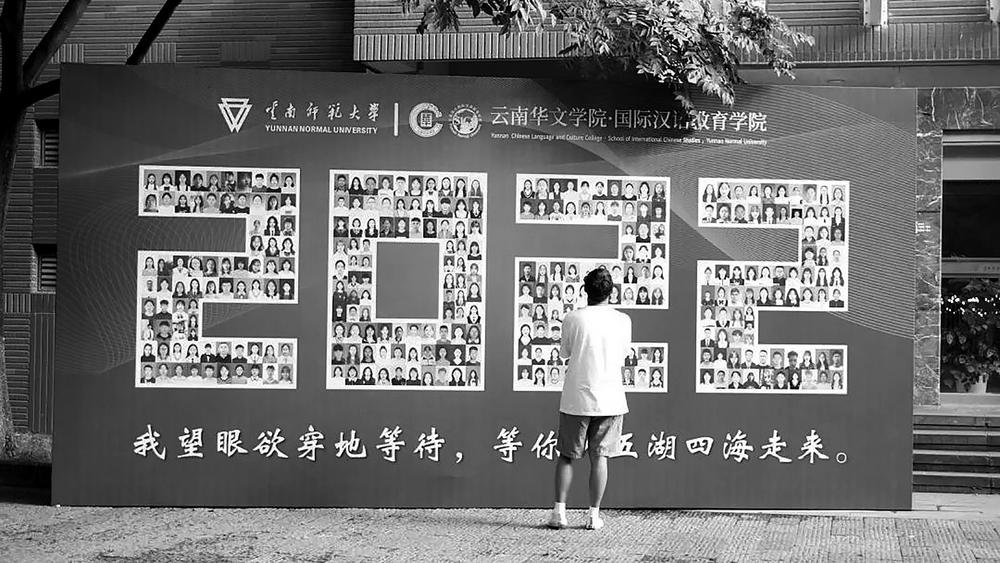 云南师范大学
YUNNAN NORMAL UNIVERSITY
云南华文学院·国际汉语教育学院
Yunnan Chinese Language and Culture College · School of International Chinese Studies , Yunnan Normal University
2022
我望眼欲穿地等待，等你 五湖四海走来。